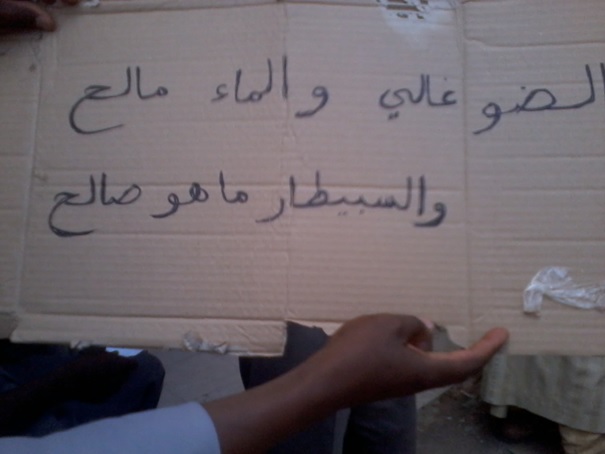 الضو غالي والماء مالح
والسبيطار ما هو صالح